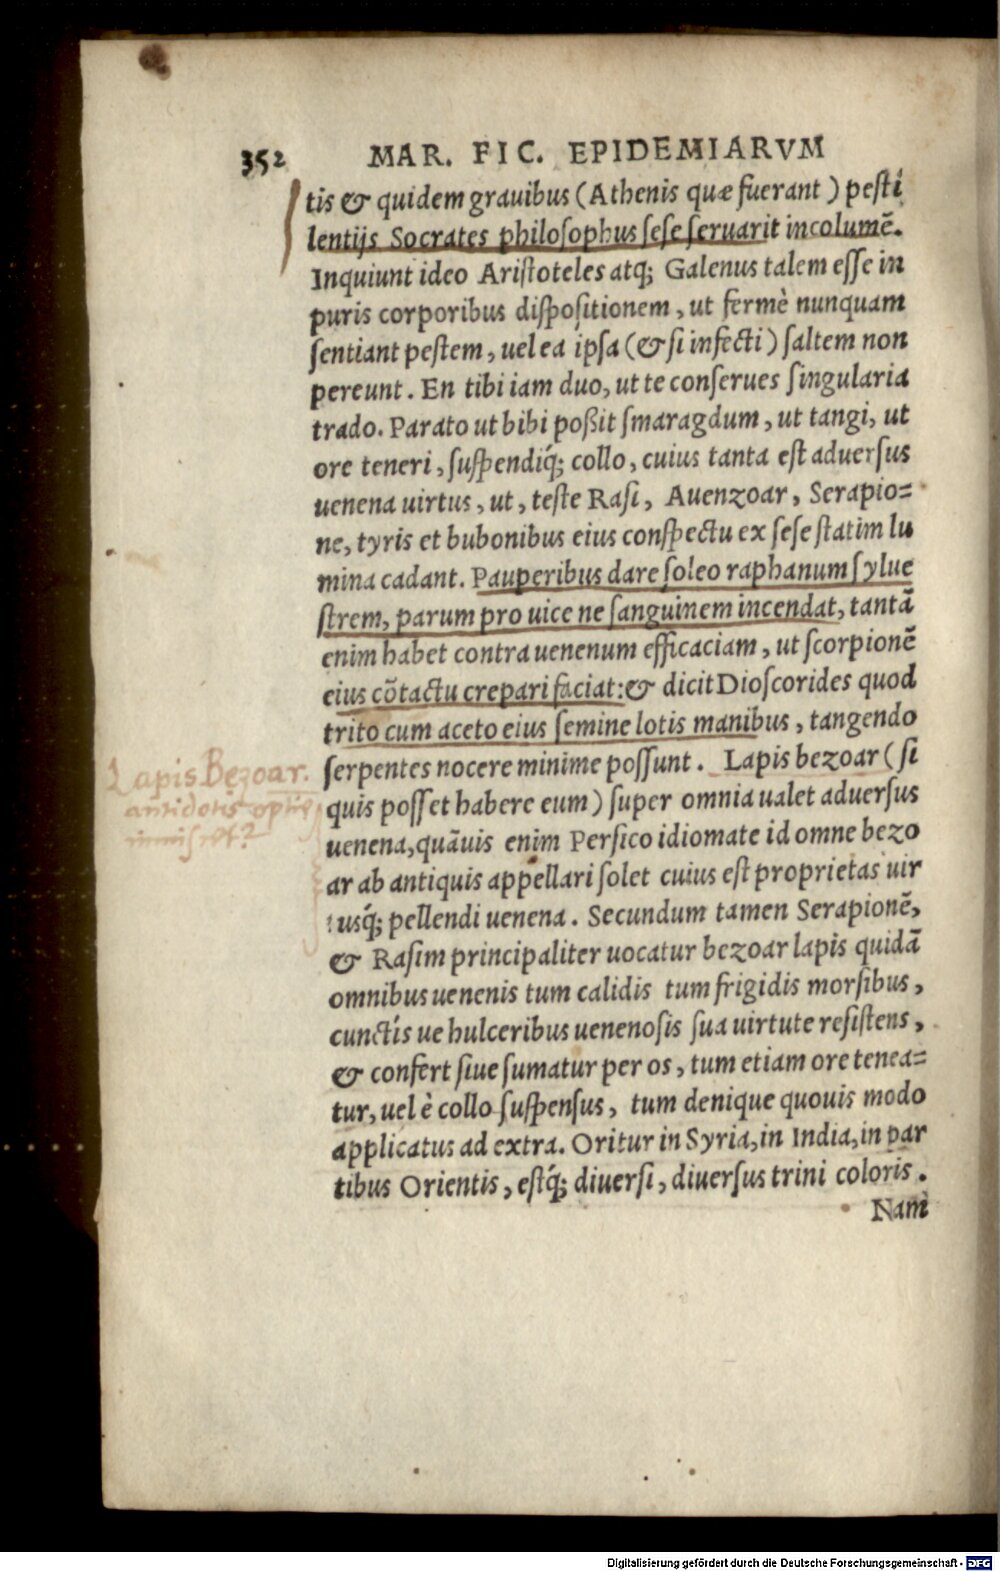 352 MAR. FIC. EPIDEMIARVM
tis & quidem grauibus (Athenis quæ fuerant) pesti
lentijs Socrates philosophus sese seruarit incolumẽ.
Inquiunt ideo Aristoteles atq; Galenus talem esse in
puris corporibus dispositionem, ut fermè nunquam
sentiant pestem, uel ea ipsa (& si infecti) saltem non
pereunt. En tibi iam duo, ut te conserues singularia
trado. Parato ut bibi poßit smaragdum, ut tangi, ut
ore teneri, suspendiq́; collo, cuius tanta est aduersus
uenena uirtus, ut, teste Rasi, Auenzoar, Serapio=
ne, tyris et bubonibus eius conspectu ex sese statim lu
mina cadant. Pauperibus dare soleo raphanum sylue
strem, parum pro uice ne sanguinem incendat, tantã
enim habet contra uenenum efficaciam, ut scorpionẽ
eius cõtactu crepari faciat: & dicit Dioscorides quod
trito cum aceto eius semine lotis manibus, tangendo
serpentes nocere minime possunt. Lapis bezoar (si
quis posset habere eum) super omnia ualet aduersus
uenena, quãuis enim Persico idiomate id omne bezo
ar ab antiquis appellari solet cuius est proprietas uir
tusq́; pellendi uenena. Secundum tamen Serapionẽ,
& Rasim principaliter uocatur bezoar lapis quidã
omnibus uenenis tum calidis tum frigidis morsibus,
cunctís ue hulceribus uenenosis sua uirtute resistens,
& confert siue sumatur per os, tum etiam ore tenea=
tur, uel è collo suspensus, tum denique quouis modo
applicatus ad extra. Oritur in Syria, in India, in par
tibus Orientis, estq́; diuersi, diuersus trini coloris.
Nam
Lapis Bezoar.
antidotis